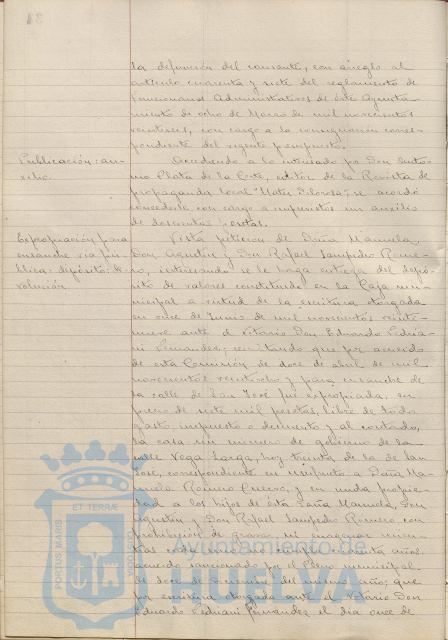 la defunción del causante, con arreglo al
artículo cuarenta y siete del reglamento de
funcionarios Administrativos de éste Ayunta-
miento de ocho de Marzo de mil novecientos
veintiseis, con cargo a la consignación corres-
pondiente del vigente presupuesto.
Publicación: au-
xilio.
Accediendo a lo interesado por Don Anto-
nio Plata de la Corte, editor de la Revista de
propaganda local "Mater Dolorosa", se acordó
concederle con cargo a imprevistos un auxilio
de doscientas pesetas.
Expropiación para
ensanche vía pú-
blica: depósito: de-
volución.
Vista petición de Doña Manuela,
Don Agustín y Don Rafael Sampedro Rome-
ro, interesando se le haga entrega del depó-
sito de valores constituido en la Caja mu-
nicipal a virtud de la escritura otorgada
en once de Junio de mil novecientos veinte-
nueve ante el Notario Don Eduardo Cedria-
ni Fernandez; resultando que por acuerdo
de esta Comisión de doce de abril de mil
novecientos veintiocho y para ensanche de
la calle de San José fué expropiada, en
precio de siete mil pesetas, libre de todo
gasto impuesto o descuento y al contado,
la casa sin número de gobierno de la
calle Vega Larga, hoy treinta de la de San
José, correspondiente en usufructo a Doña Ma-
nuela Romero Cuervo, y en nuda propie-
dad a los hijos de ésta Doña Manuela, Don
Agustín y Don Rafael Sampedro Romero con
prohibición de gravar ni enagenar mien-
tras
acuerdo sancionado por el Pleno municipal
de doce de del mismo año; que
por escritura otorgada ante el Notario Don
Eduardo Cedriani Fernandez el dia once de
PORTUS MARIS ET TERRAE CUSTODIA
Ayuntamiento de
HUELVA